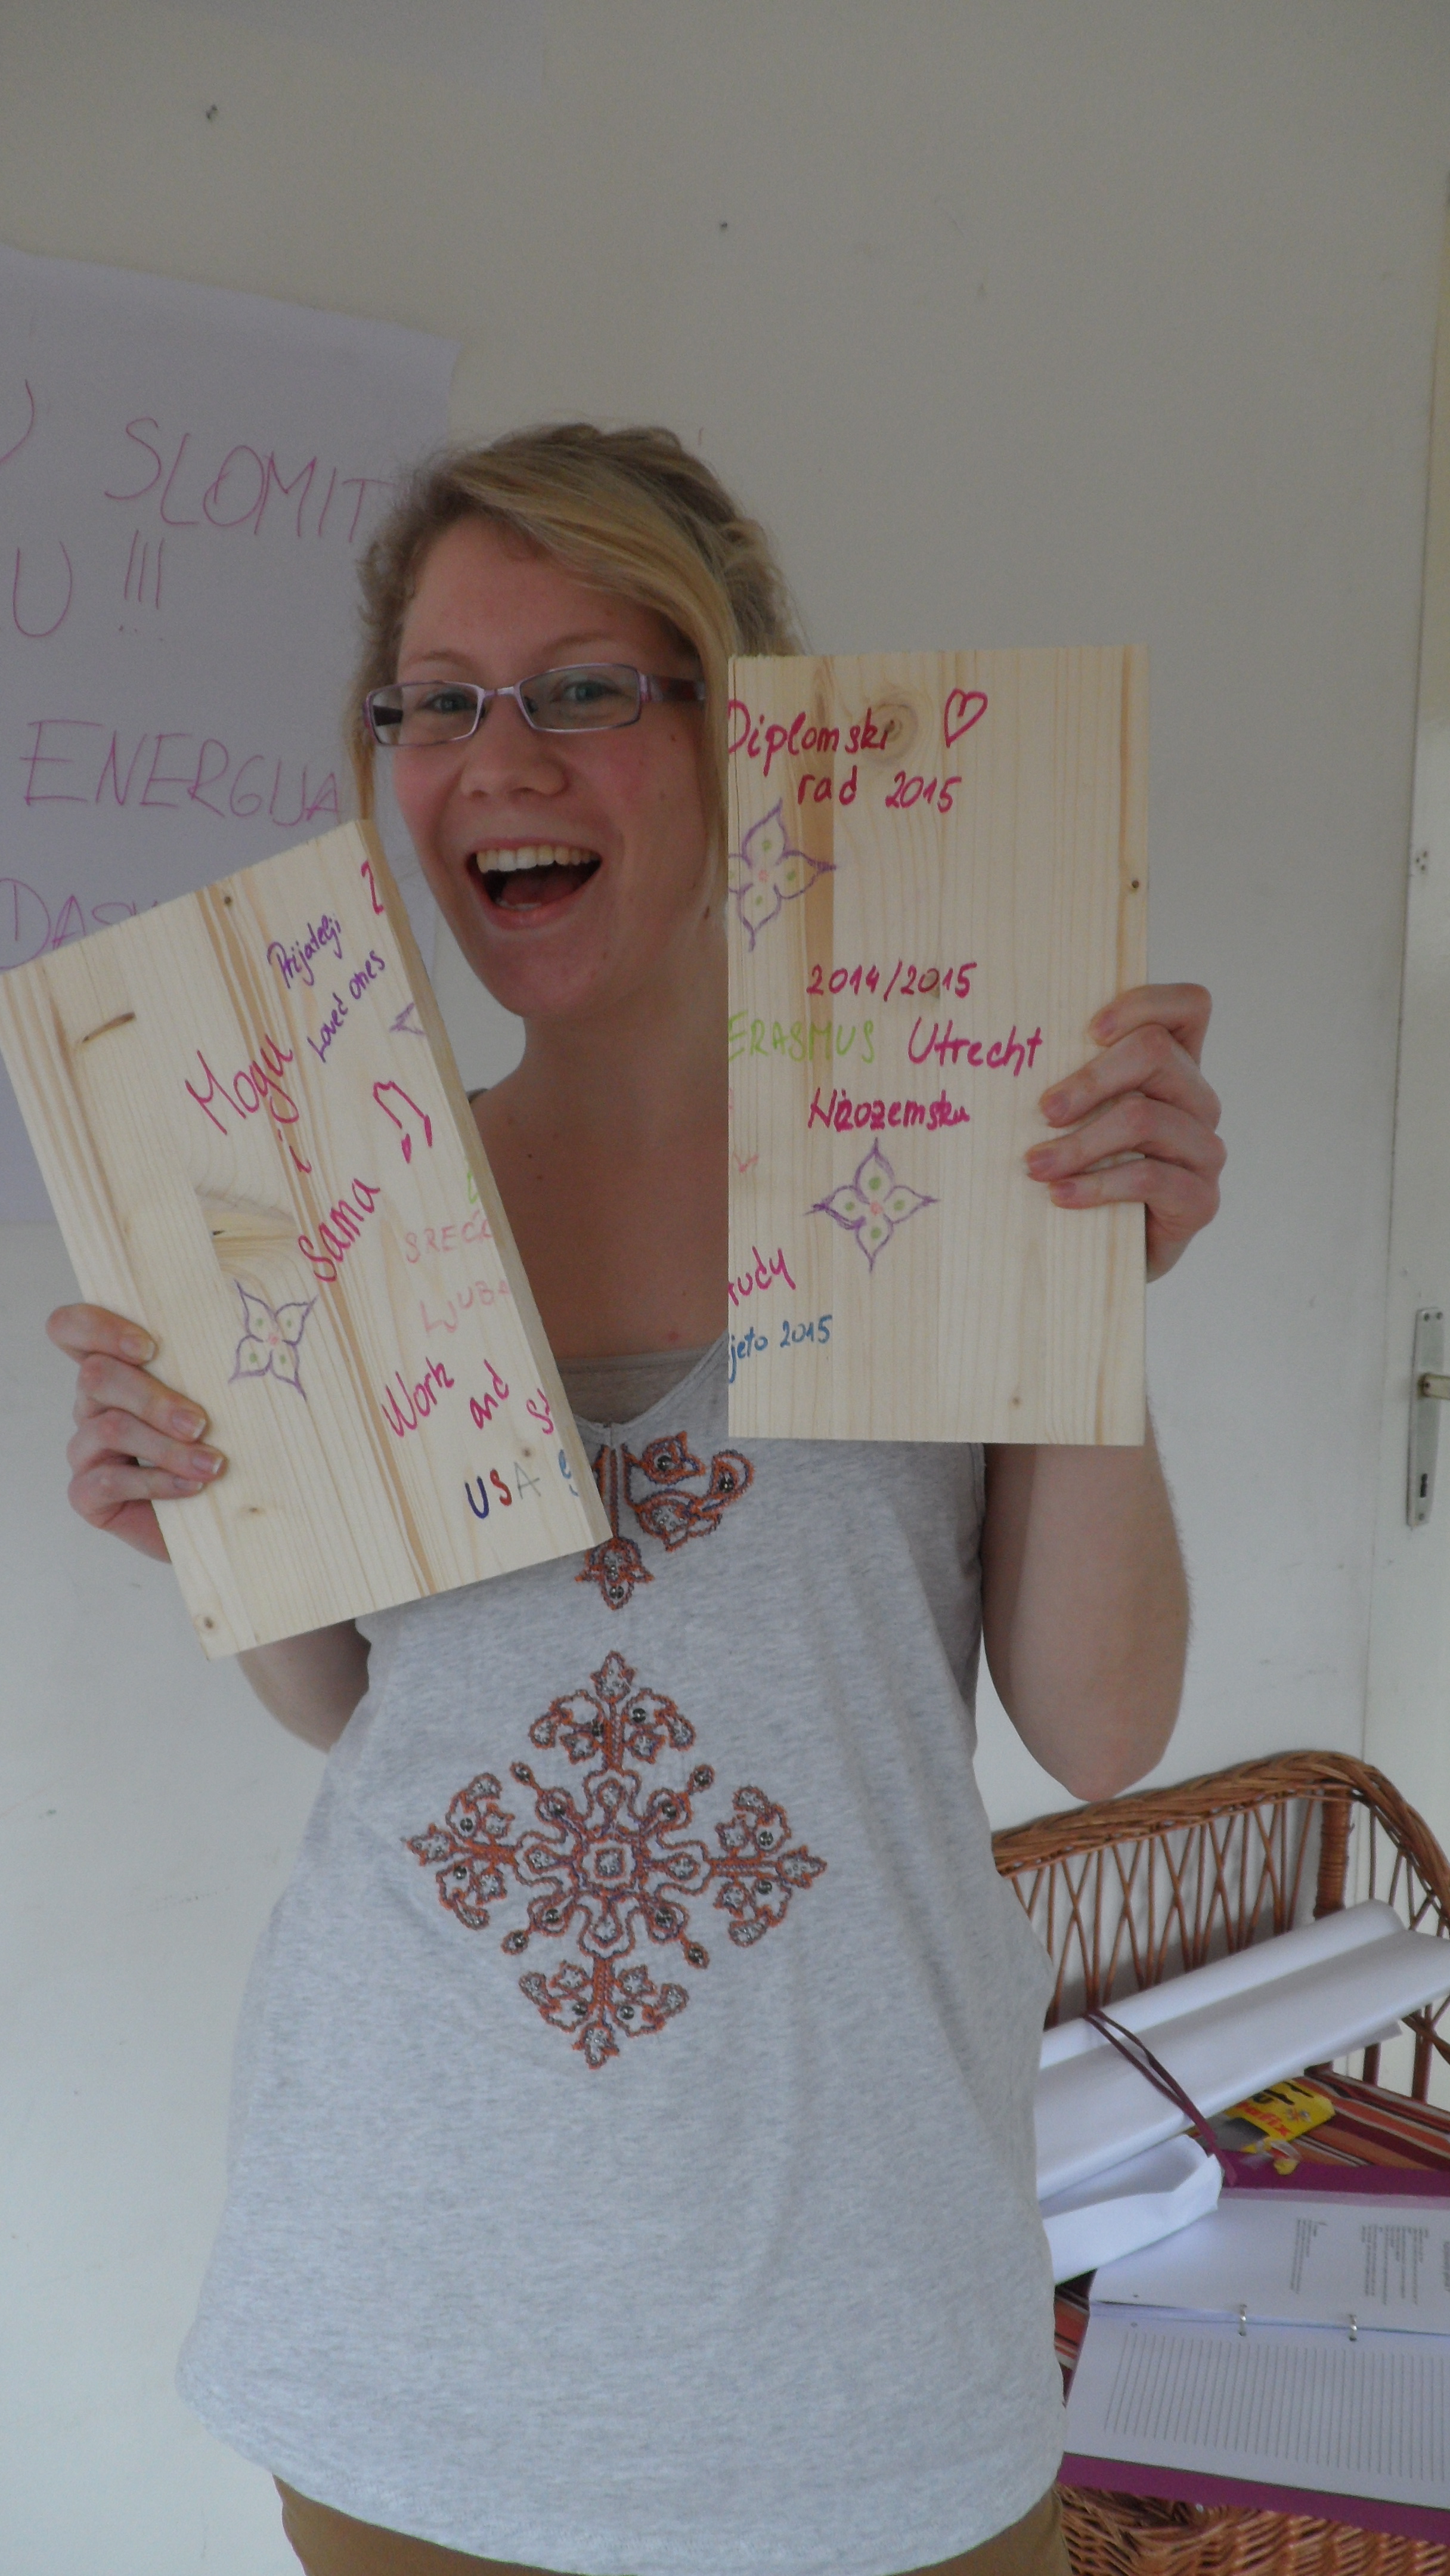 SLOMIT
U !!!
ENERGIJA
DASK
Prijatelji
Loved ones
Mogu
i
sama
SREĆ
LJUBA
Work and St
USA
Diplomski
rad 2015
2014/2015
ERASMUS Utrecht
Nizozemska
tudy
jeto 2015